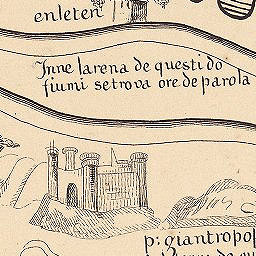 enleten
Inne larena de questi do
fiumi se trova ore de parola
p: giantropo